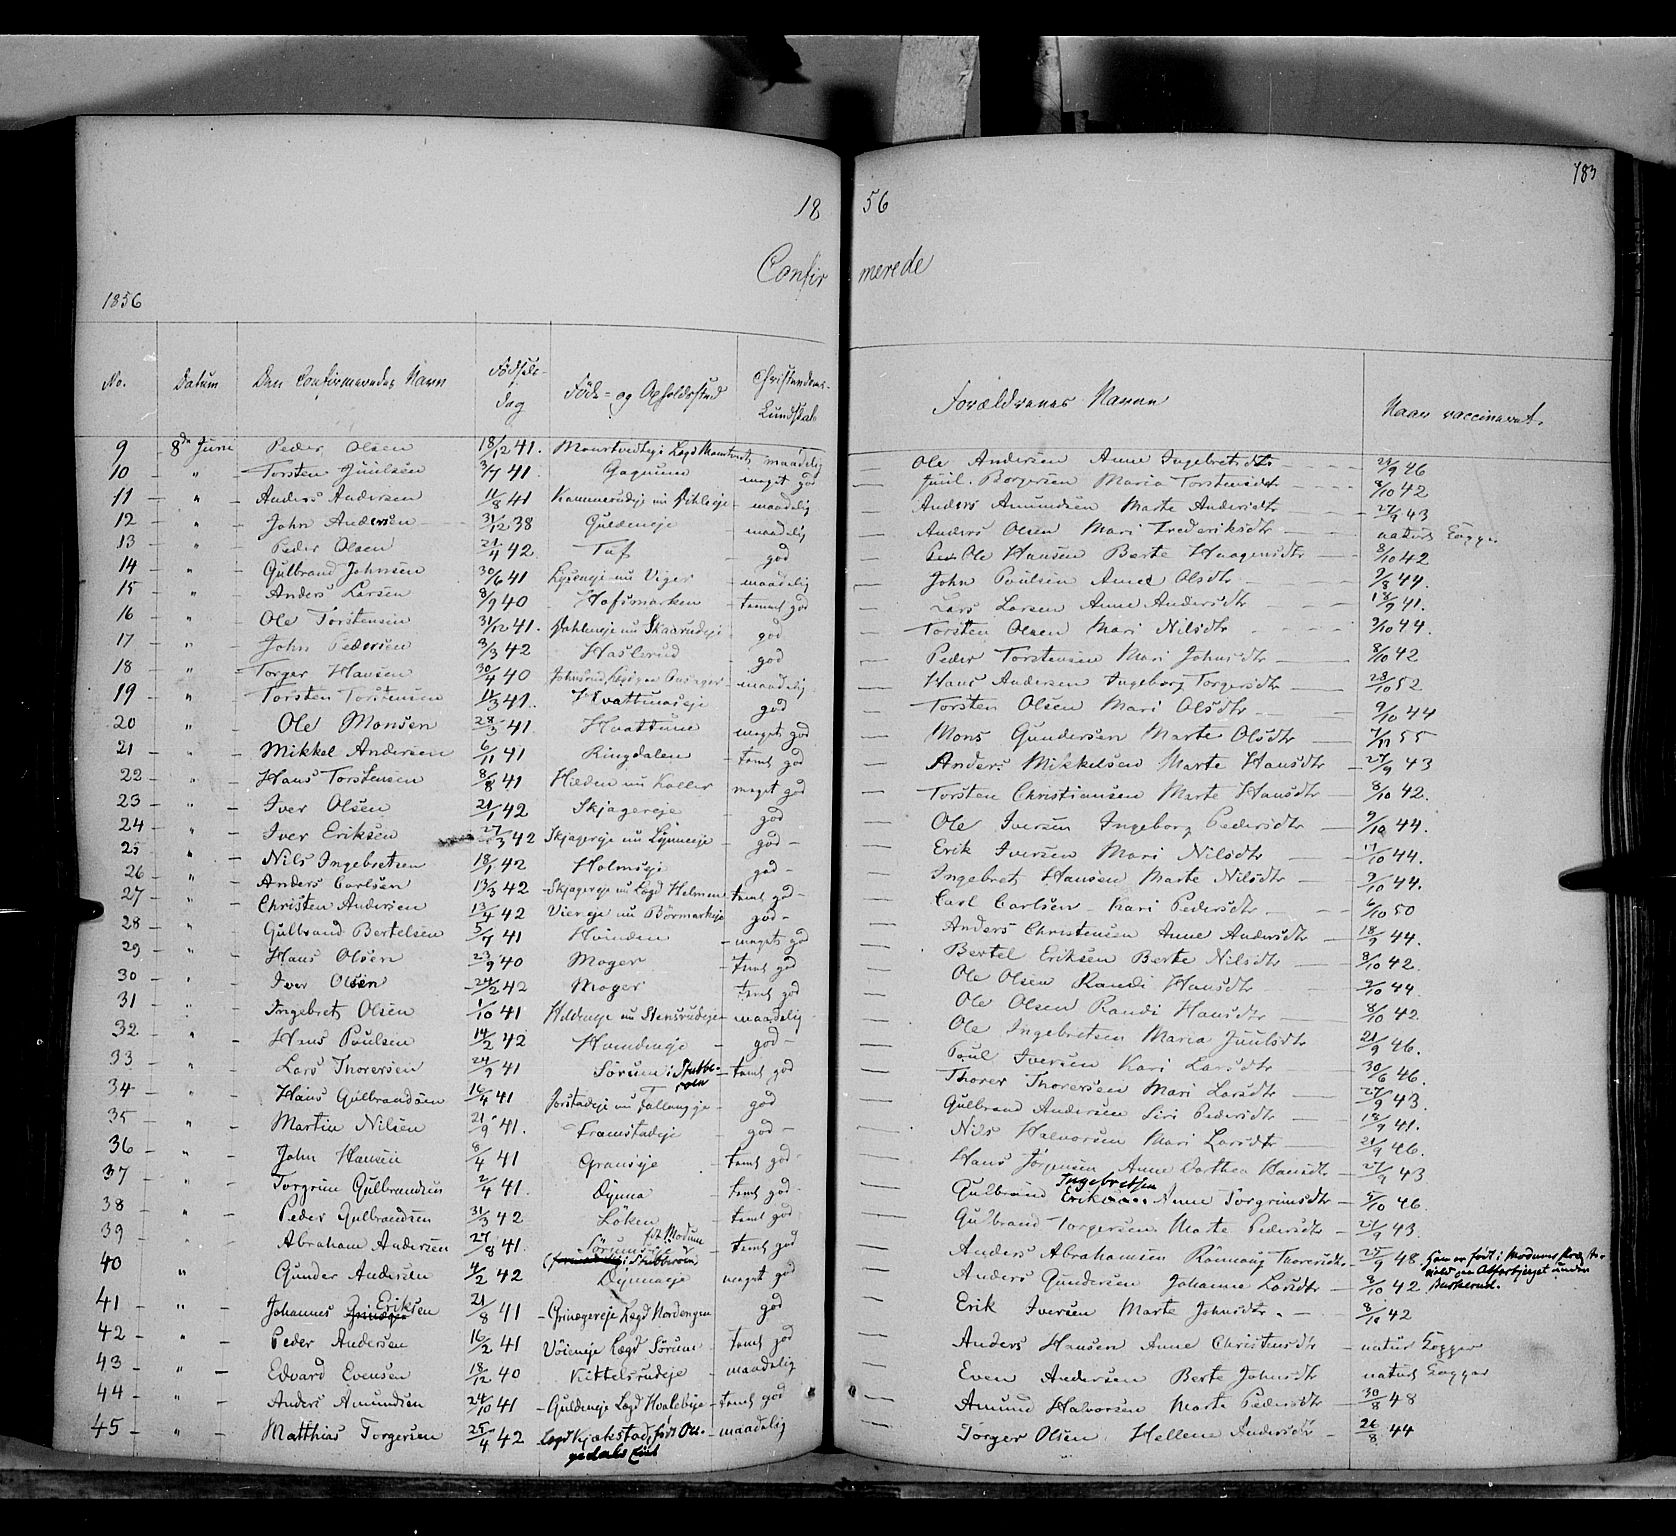 183
18 56
Confir merede
1856
No. Datum Den Confirmeredes Navn Fødsels- dag Føde- og Opholdssted Christendoms- Kundskab Forældrenes Navne Naar vaccineret.
9 8de Juni Peder Olsen 18/12 41. maadelig Ole Andersen Anne Ingebretsdtr 46
10 " Torsten Juulsen 3/7 41 Gagnum meget god Juul Borgersen Maria Torstensdtr 8/10 42
11 " Anders Andersen 11/8 41 maadelig Anders Amundsen Marte Andersdtr 27/9 43
12 " John Andersen 31/12 38 Guldeneje maadelig Anders Olsen Mari Frederiksdtr naturl Kopper
13 " Peder Olsen 21/4 42 Tuf god Ole Hansen Berte Haagensdtr 8/10 42
14 " Gulbrand Johnsen 30/6 41 nu Viger maadelig John Poulsen Anne Olsdtr 9/8 44.
15 " Anders Larsen 8/9 40 Hofsmarken temmel god Lars Larsen Anne Andersdtr 18/9 41.
16 " Ole Torstensen 31/12 41. nu Skaarudeje god Torsten Olsen Mari Nilsdtr 9/10 44.
17 " John Pedersen 3/3 42 Haslerud god Peder Torstensen Mari Johnsdtr 8/10 42
18 " Torger Hansen 30/4 40 maadelig Hans Andersen Ingeborg Torgersdtr 23/10 52
19 " Torsten Torstensen 11/3 41. Hvattumseje god Torsten Olsen Mari Olsdtr 9/10 44
20 " Ole Monsen 28/3 41 Hvattum meget god Mons Gundersen Marte Olsdtr 7/11 55
21 " Mikkel Andersen 6/11 41 Ringdalen temt god Anders Mikkelsen Marte Hansdtr 27/9 43
22 " Hans Torstensen 8/8 41 Hilden nu Koller meget god Torsten Christiansen Marte Hansdtr 8/10 42.
23 " Iver Olsen 21/1 42 Skjagereje god Ole Iversen Ingeborg Pedersdtr 9/10 44.
24 " Iver Eriksen 27/3 42 Skjagereje nu Lynneeje god Erik Iversen Mari Nilsdtr 11/10 44.
25 " Nils Ingebretsen 18/1 42 Holmseje god Ingebret Hansen Marte Nilsdtr 9/10 44.
26 " Anders Carlsen 13/3 42 Skjagereje nu Lægd Helmen temt god Carl Carlsen Kari Pedersdtr 6/10 50
27 " Christen Andersen 13/4 42 nu Børmarkeje god Anders Christensen Anne Andersdtr 18/9 44.
28 " Gulbrand Bertelsen 5/7 41 Hvinden meget god Bertel Eriksen Berte Nilsdtr 8/10 42.
29 " Hans Olsen 23/9 40 Moger temt god Ole Olsen Randi Hansdtr 9/10 44.
30 " Iver Olsen 24/2 42 Moger temt god Ole Olsen Randi Hansdtr 8/10 42
31 " Ingebret Olsen 1/10 41 Hildeneje nu Stensrudeje maadelig Ole Ingebretsen Maria Juulsdtr 21/9 46.
32 " Hans Poulsen 14/2 42 Hvindeneje god Poul Iversen Kari Larsdtr 30/6 46.
33 " Lars Thorersen 24/9 41 Sørum i Stubberoen temt god Thorer Thorersen Mari Larsdtr 27/9 43.
34 " Hans Gulbrandsen 16/4 41 Jorstadeje nu god Gulbrand Andersen Siri Pedersdtr 18/9 41.
35 " Martin Nilsen 21/9 41. Framstadeje god Nils Halvorsen Mari Larsdtr 21/9 46.
36 " John Hansen 8/4 41 Granseje temt god Hans Jørgensen Anne Dorthea Hansdtr 27/9 43
37 " Torgrim Gulbrandsen 2/4 41. Dynna temt god Gulbrand Ingebretsen Anne Torgrimsdtr 9/10 46.
38 " Peder Gulbrandsen 31/3 42 Løken temt god Gulbrand Torgersen Marte Pedersdtr 27/9 43.
39 " Abraham Andersen 27/8 41. Sørumseje fdt Modum i Stubberoen temt god Anders Abrahamsen Rønnaug Thorersdtr 25/9 48 Han er født i Modums Præstegield
40 " Gunder Andersen 4/2 42 Dynnaeje meget god Anders Gundersen Johanne Larsdtr 8/10 42
41 " Johannes Eriksen 21/8 41 Grinagereje Lægd Nordengen god Erik Iversen Marte Johnsdtr. 8/10 42
42 " Peder Andersen 16/2 41 Vøieneje Lægd Sørum temt god Anders Hansen Anne Christensdtr naturl Kopper
43 " Edvard Evensen 18/12 40 Kittelsrudeje maadelig Even Andersen Berte Johnsdtr naturl Kopper
44 " Anders Amundsen 24/10 41 Guldeneje Lægd Hvalebyeje temt god Amund Halvorsen Marte Pedersdtr 30/8 48
45 " Matthias Torgersen 25/4 42 Lægd Kjækstad, født maadelig Torger Olsen Hellene Andersdtr 26/8 44